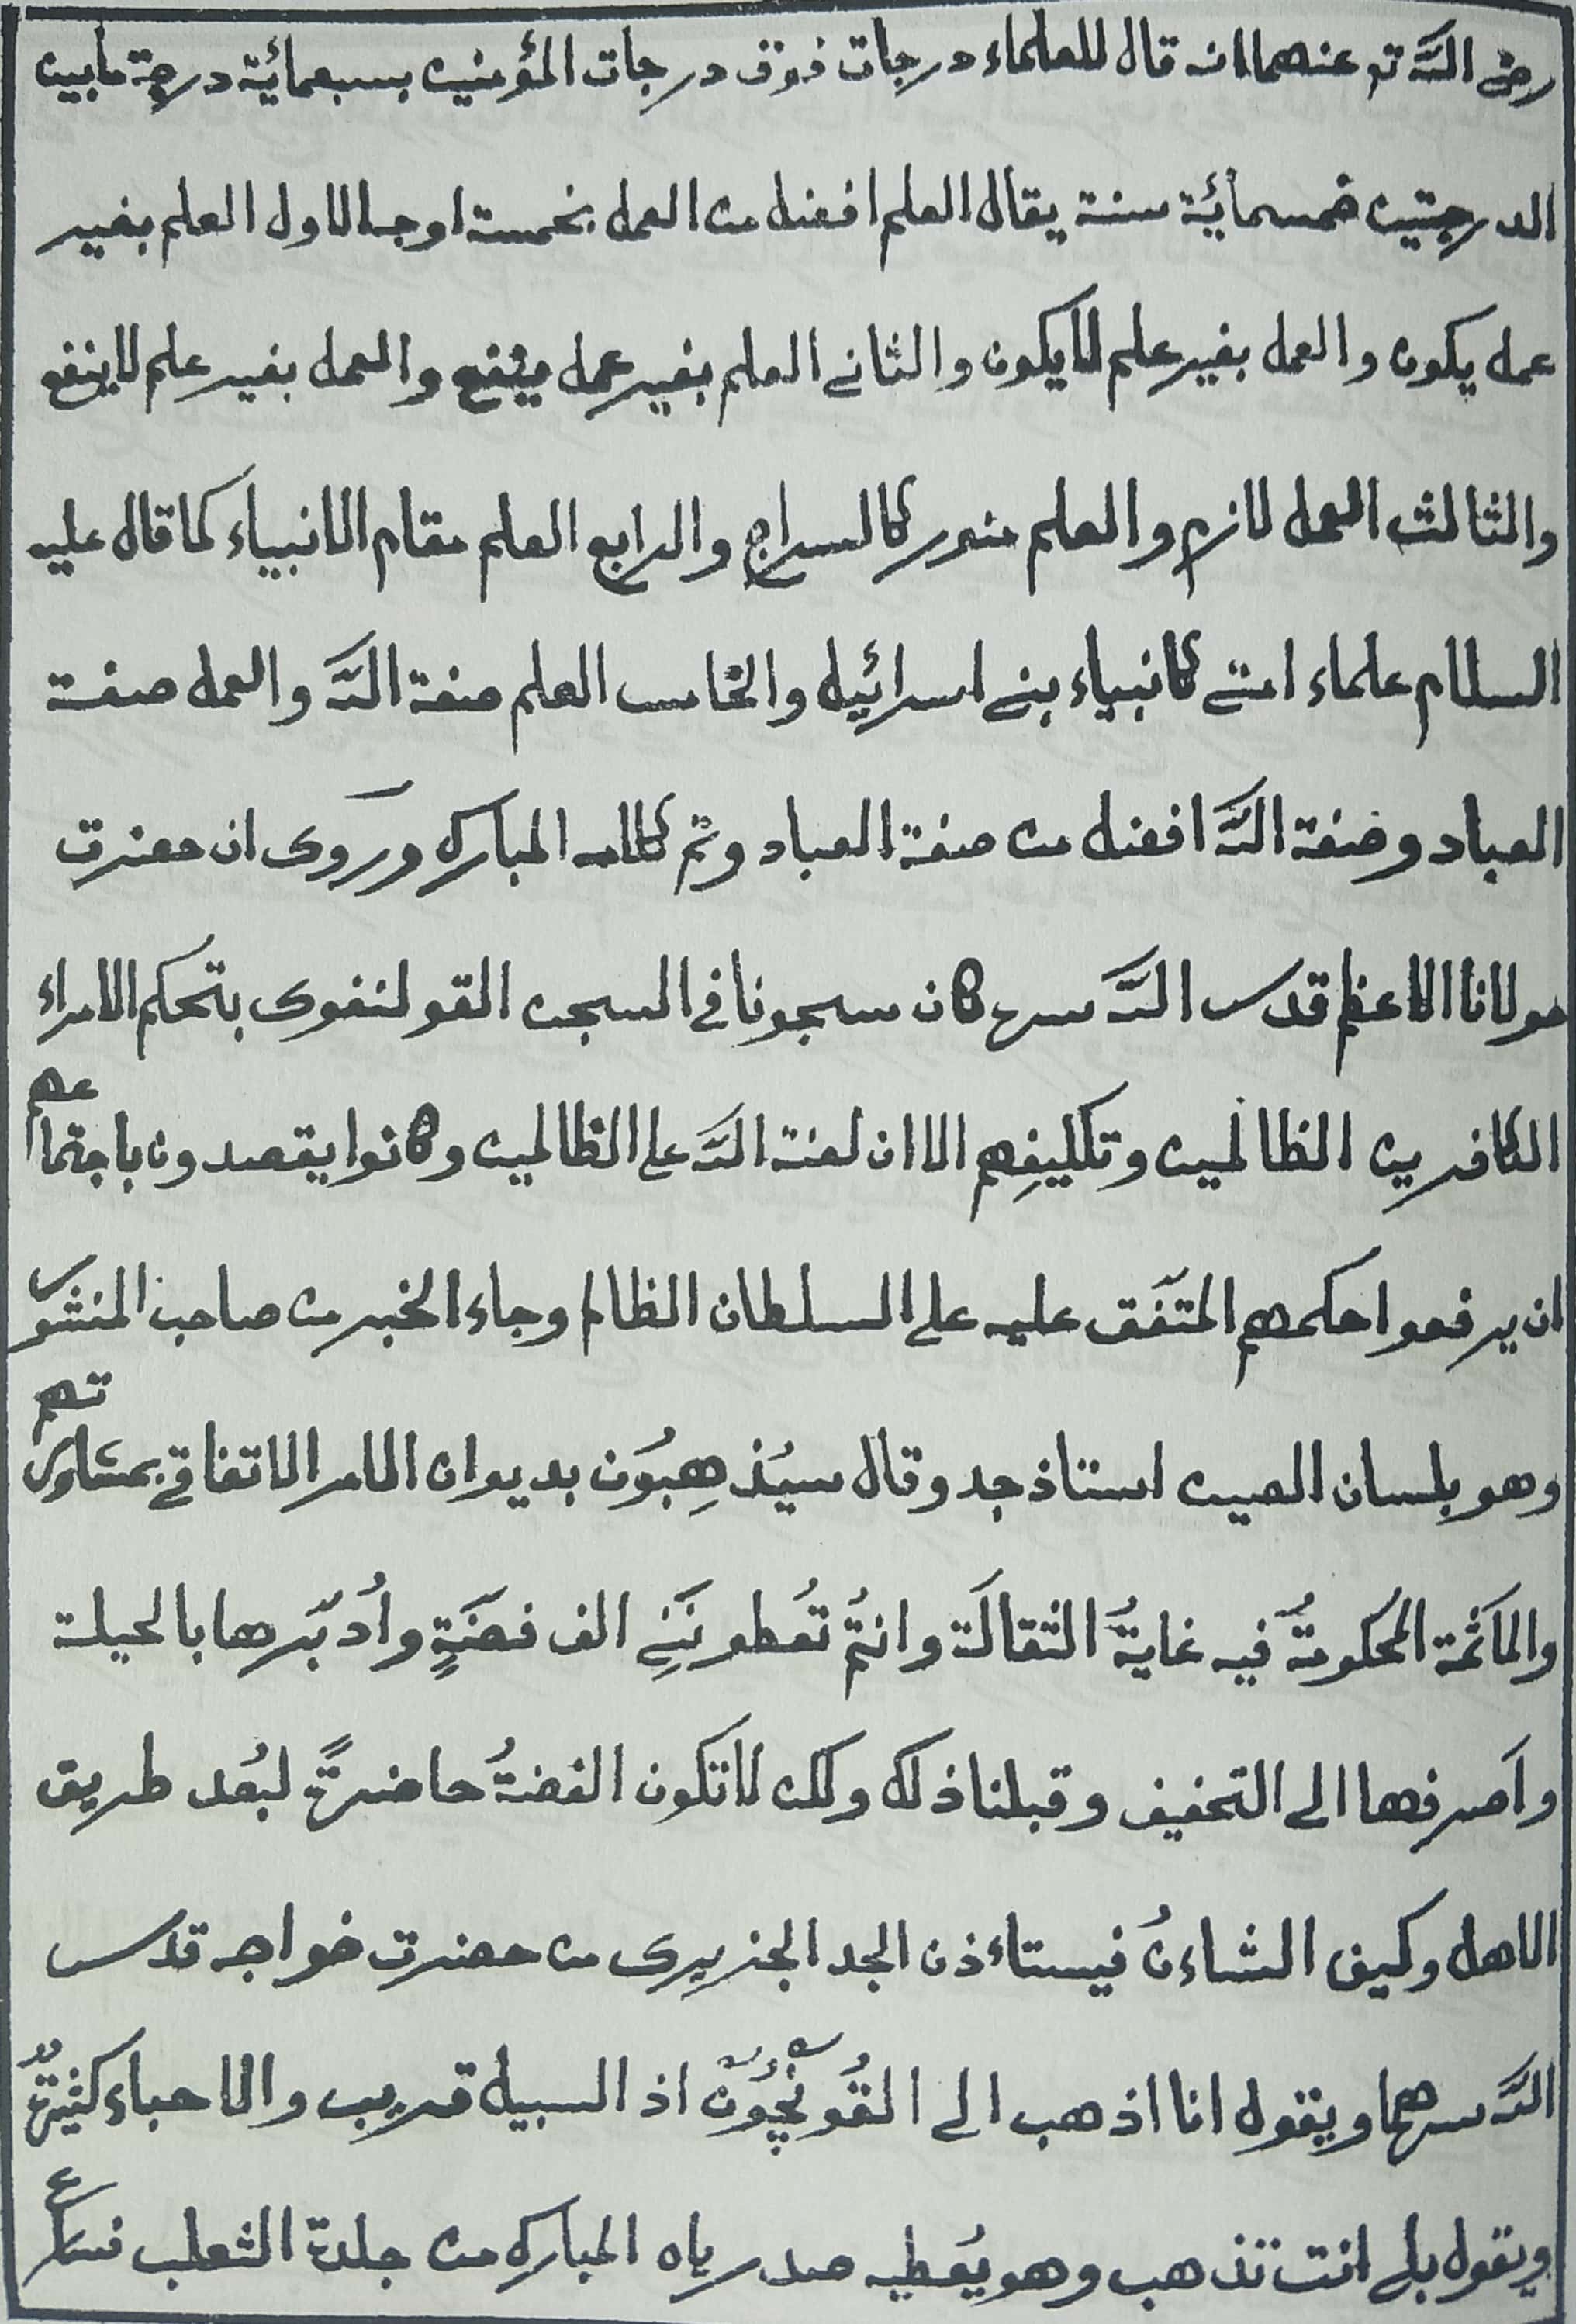 رضى الله تع عنهما انه قال للعلماء درجات فوق درجات المؤمنين بسبعمائة درجة مابين
الدرجتين خمسمائة سنة يقال العلم افضل من العمل بخمسة اوجه الاول العلم بغير
عمل يكون والعمل بغير علم لايكون والثانى العلم بغير عمل ينفع والعمل بغير علم لاينفع
والثالث العمل لازم والعلم منور كالسراج والرابع العلم مقام الانبياء كما قال عليه
السلام علماء امتى كانبياء بنى اسرائيل والخامس العلم صفة الله والعمل صفة
العباد وصفة الله افضل من صفة العباد وتم كلامه المبارك وروى ان حضرت
مولانا الاعظم قدس الله سره كان سجونا فى السجن القولنغوى بتحكم الامراء
الكافرين الظالمين وتكليفِهم الا ان لعنة الله على الظالمين وكانوا يقصدون باجتماعهم
ان يرفعوا حكمهم المتّفق عليه على السلطان الظالم وجاء الخبر من صاحب المنشور
وهو بلسان الصين استاذ جد وقال سيُذهِبُون بديوان الامر الاتفاقى بمشاورتهم
والمآثمة المحكومةُ فيه غايةُ الثقالَة وانتُم تُعطونَنِى الف فضَةٍ وأُدبّرها بالحيلة
واَصرفها الى التخفيف وقبلنا ذلك ولكن لاتكون الفضةُ حاضرةً لبُعد طريق
الاهل وكيف الشاءنُ فيستاءذن الجد الجزيرى من حضرت خواجه قدس
الله سرهما ويقول انا اذهب الى القُونْچُون اذ السبيل قريب والاحباء كثيرةٌ
ويقول بلى انت تذهب وهو يُعطيه صدرياه المبارك من جلدة الثعلب